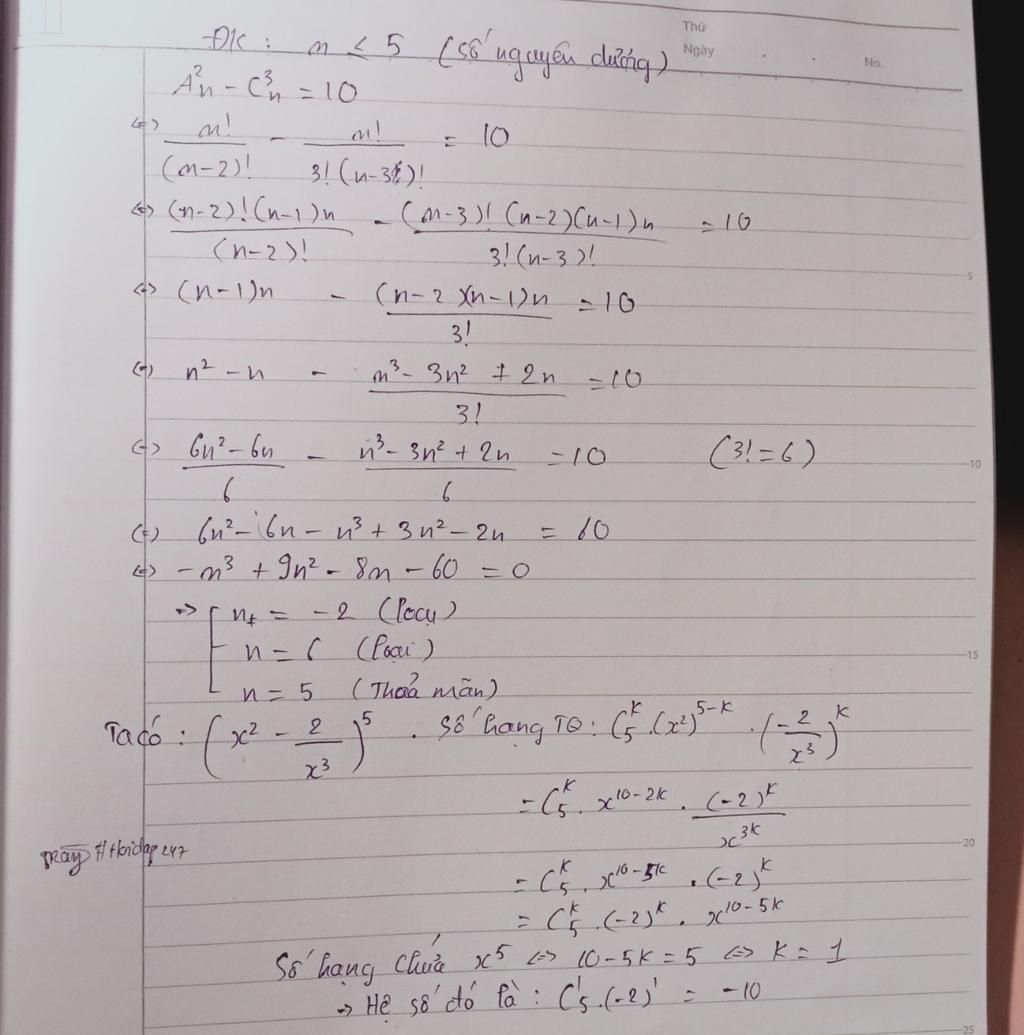 Thứ
Ngày . . No.
ĐK : n ≤ 5 (số nguyên dương)
A²n - C³n = 10
<=> n!/(n-2)! - n!/3!(n-3)! = 10
<=> (n-2)!(n-1)n/(n-2)! - (n-3)!(n-2)(n-1)n/3!(n-3)! = 10
<=> (n-1)n - (n-2)(n-1)n/3! = 10
<=> n² - n - n³ - 3n² + 2n/3! = 10
<=> 6n² - 6n/6 - n³ - 3n² + 2n/6 = 10 (3! = 6)
<=> 6n² - 6n - n³ + 3n² - 2n = 60
<=> -n³ + 9n² - 8n - 60 = 0
=> n = -2 (loại)
n = 6 (loại)
n = 5 (Thoả mãn)
Ta có : (x² - 2/x³)⁵ . Số hạng TQ : C₅ᵏ.(x²)⁵⁻ᵏ . (-2/x³)ᵏ
= C₅ᵏ . x¹⁰⁻²ᵏ . (-2)ᵏ/x³ᵏ
= C₅ᵏ . x¹⁰⁻⁵ᵏ . (-2)ᵏ
= C₅ᵏ . (-2)ᵏ . x¹⁰⁻⁵ᵏ
Số hạng chứa x⁵ <=> 10 - 5k = 5 <=> k = 1
=> Hệ số đó là : C₅¹.(-2)¹ = -10
5
10
15
20
25